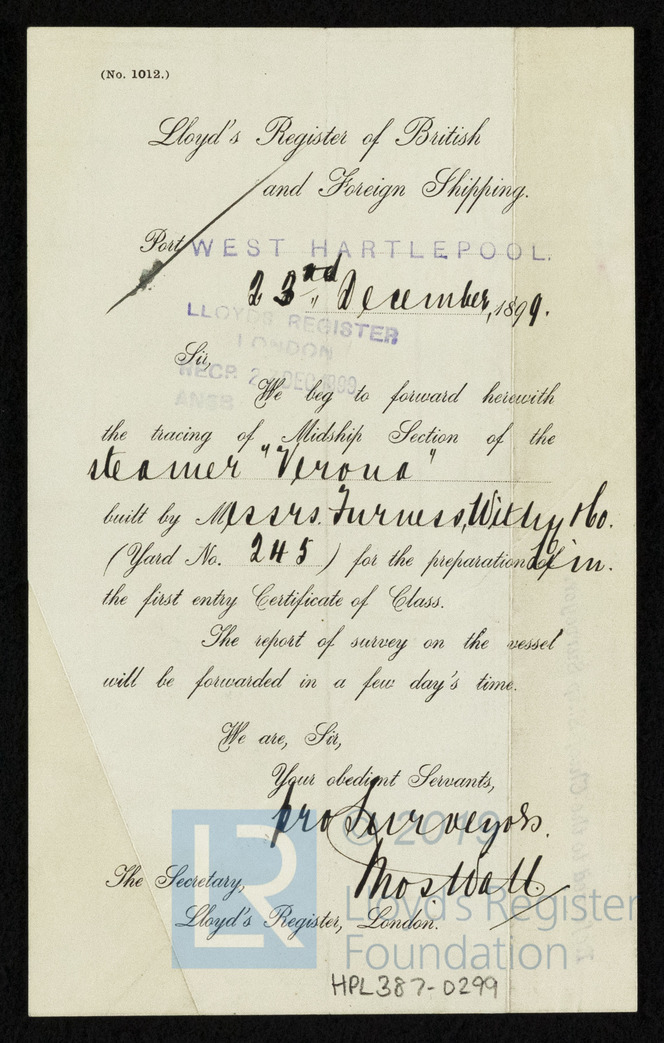 (No. 1012.)
Lloyd's Register of British
and Foreign Shipping.
Port WEST HARTLEPOOL.
23nd December, 1899.
LLOYDS REGISTER
LONDON
RECP. 2 DEC 1899
Sir,
We beg to forward herewith
the tracing of Midship Section of the
steamer "Verona"
built by Messrs. Furness, Withy & Co.
(Yard No. 245) for the preparation of
the first entry Certificate of Class.
The report of survey on the vessel
will be forwarded in a few day's time.
We are, Sir,
Your obedient Servants,
pro Surveyors.
Thos Watt
The Secretary,
Lloyd's Register, London.
LR
© 2019
Lloyd's Register
Foundation
HPL387-0299